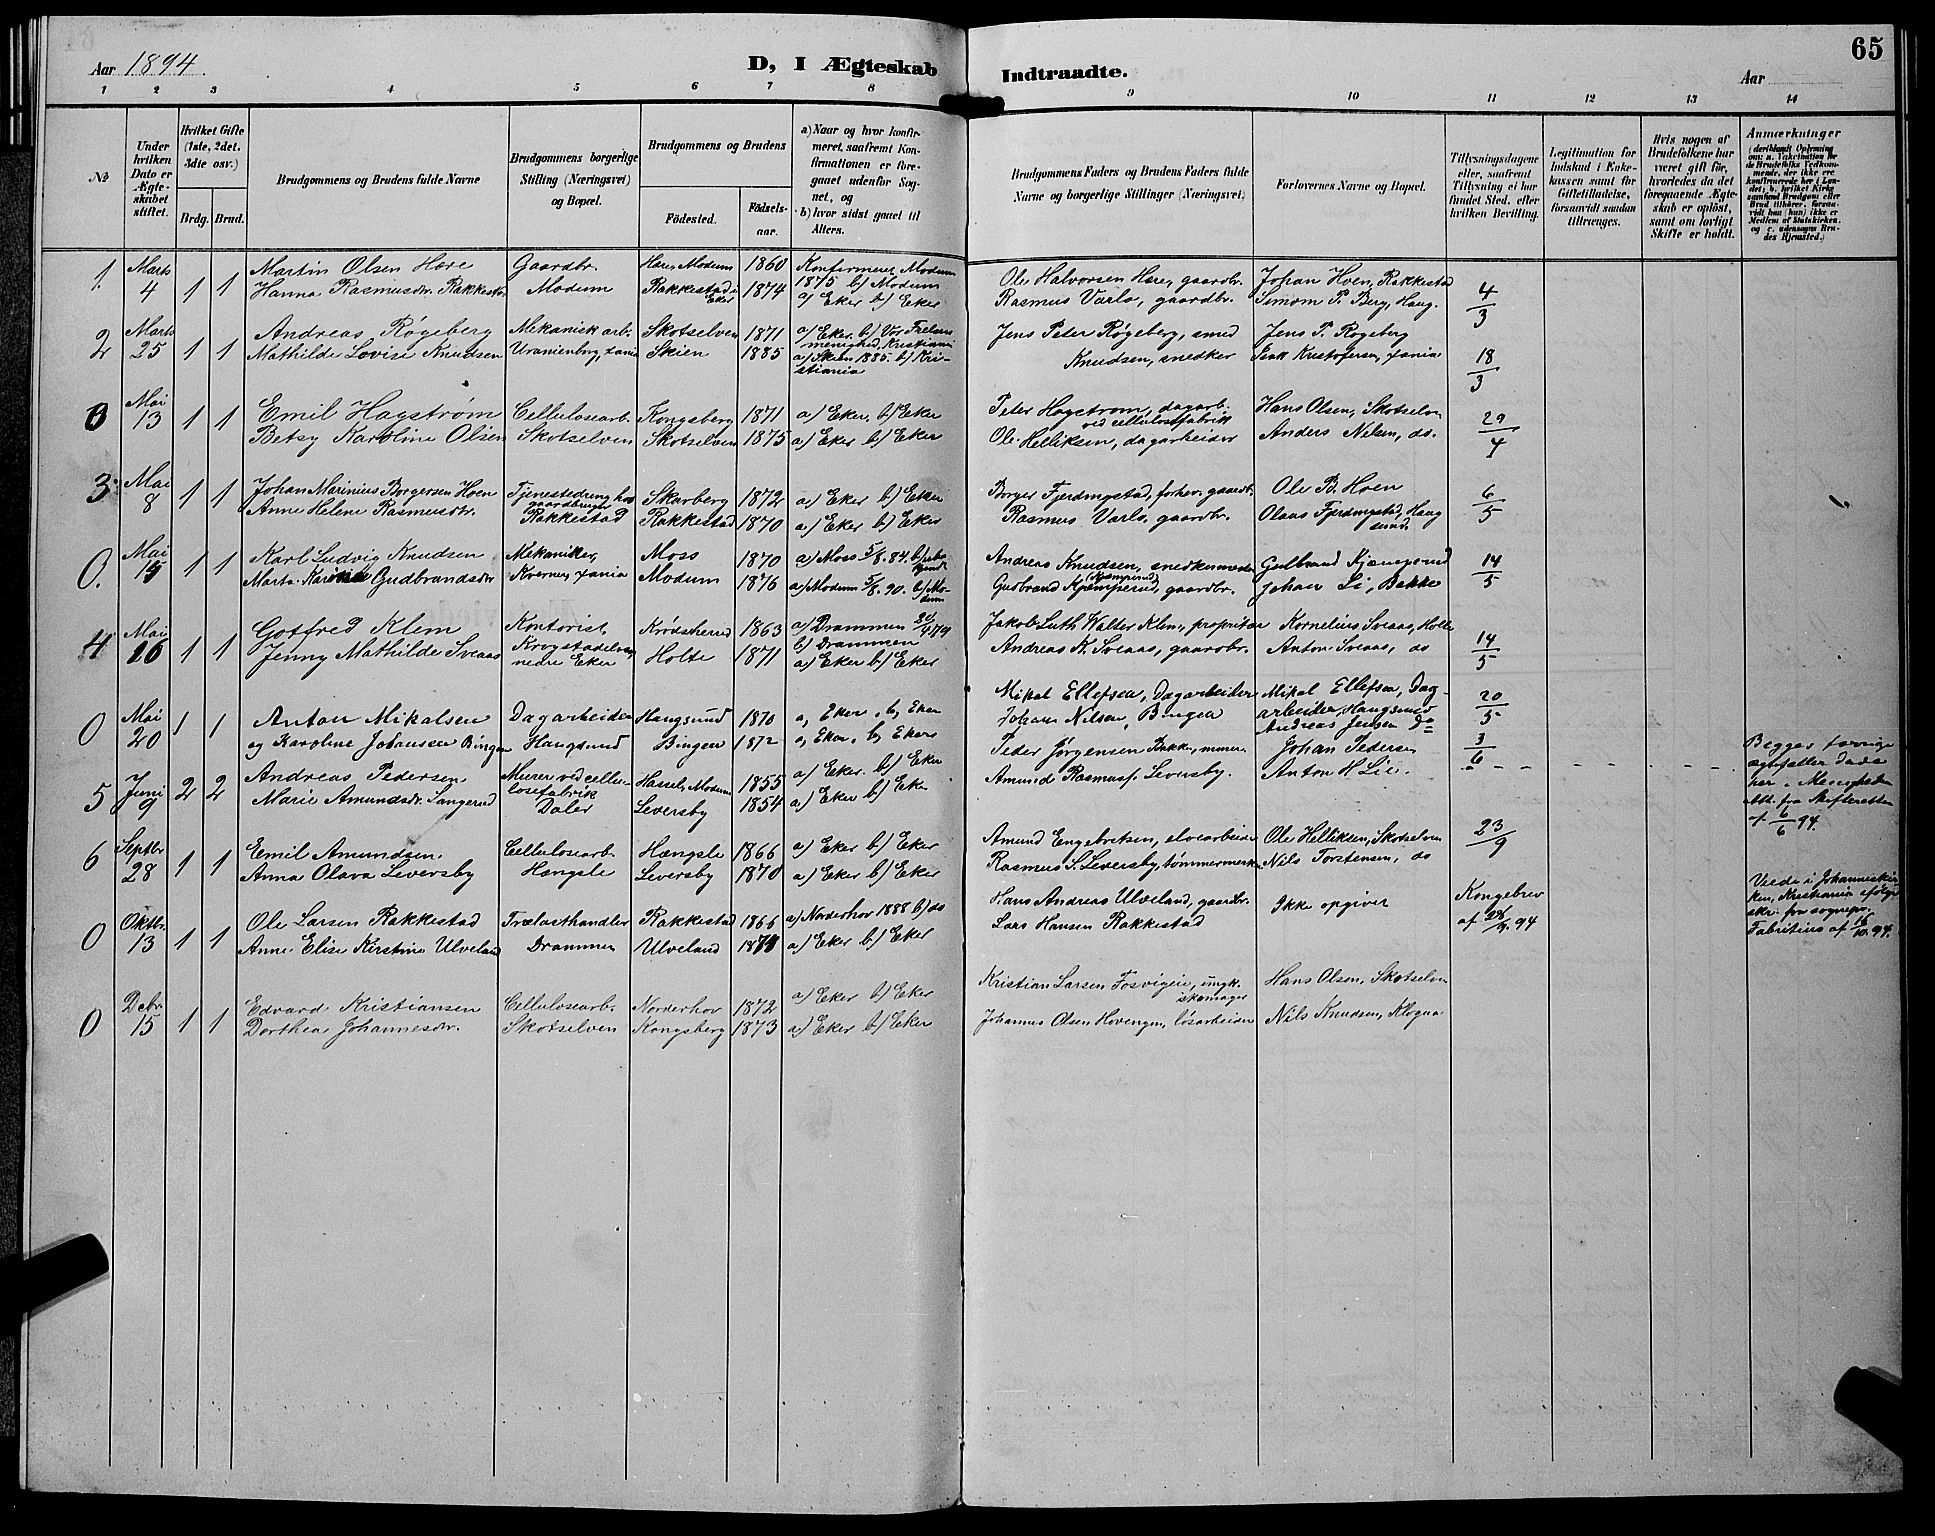 Aar 1894.
D, I Ægteskab Indtraadte.
Aar
65
1 2 3 4 5 6 7 8 9 10 11 12 13 14
№
Under hvilken Dato er Ægteskabet stiftet.
Hvilket Gifte (1ste, 2det. 3die osv.)
Brdg. Brud.
Brudgommens og Brudens fulde Navne
Brudgommens borgerlige Stilling (Næringsvei) og Bopæl.
Brudgommens og Brudens
Födested.
Födsels-aar.
a) Naar og hvor konfirmeret, saafremt Konfirmationen er foregaaet udenfor Sognet, og
b) hvor sidst gaaet til Alters.
Brudgommens Faders og Brudens Faders fulde Navne og borgerlige Stillinger (Næringsvei)
Forlovernes Navne og Bopæl.
Tillysningsdagene eller, saafremt Tillysning ei har fundet Sted, efter hvilken Bevilling.
Legitimation for Indskud i Enkekassen samt for Giftetilladelse, forsaavidt saadan tiltrænges.
Hvis nogen af Brudefolkene har været gift før, hvorledes da det foregaaende Ægteskab er opløst, samt om lovligt Skifte er holdt.
Anmærkninger (deriblandt Oplysning om: a. Vakcination for de Brudefolks Vedkommende, der ikke ere konfirmerede her i Landet; b. hvilket Kirkesamfund Brudgom eller Brud tilhører, forsaavidt han (hun) ikke er Medlem af Statskirken, og c. udensogns Brudes Hjemsted.)
1. Marts 4 1 1 Martin Olsen Hære Gaardbr. Hære, Modum 1860 Konfirmeret Modum 1875 b) Modum Ole Halvorsen Hære, gaardbr. Johan Hoen, Rakkestad 4/3
Hanna Rasmusdr. Rakkestad Modum Rakkestad i Eker 1874 a) Eker b) Eker Rasmus Varlo, gaardbr. Simom P. Berg, Haug.
2 Marts 25 1 1 Andreas Røgeberg Mekanisk arb. Skotselven 1871 a) Eker. b) Vor Frelsers menighed, Kristiania Jens Peter Røgeberg, smed Jens P. Røgeberg 18/3
Mathilde Lovise Knudsen Uranienborg, xania Skien 1885 a) Skien 1885. b) Kristiania Knudsen, snedker Kristofersen, xania
0 Mai 13 1 1 Emil Hagstrøm Cellulosearb. Kongsberg 1871 a) Eker. b) Eker Peter Hagstrøm, dagarb. ved cellulosefabrik Hans Olsen, Skotselven 29/4
Betsy Karoline Olsen Skotselven Skotselven 1875 a) Eker b) Eker Ole Helliksen, dagarbeider Anders Nilsen, do.
3. Mai 8 1 1 Johan Marinius Borgersen Hoen Tjenestedreng hos gaardbruger Skarberg 1872 a) Eker b) Eker Borger Fjerdingstad, forhv. gaardb. Ole B. Hoen 6/5
Anne Helene Rasmusdr. Rakkestad Rakkestad 1870 a) Eker b) Eker Rasmus Varlo, gaardbr. Olaus Fjerdingstad, Haugsund.
0. Mai 15 1 1 Karl Ludvig Knudsen Mekaniker, Moss 1870 a) Moss 5/8. 84. b) Andreas Knudsen, snedkermester Gulbrand Kjæmperud 14/5
Marta Karine Gudbrandsdr. Kværner, xania Modum 1876 a) Modum 5/8. 90. b) Modum Gudbrand Kjæmperud, gaardbr. Johan Li, Bakke
4 Mai 16 1 1 Gotfred Klem Kontorist Krødsherred 1863 a) Drammen 20/4 79 b) Drammen Jakob Luth Walter Klem, proprietær Kornelius Sveaas, Holte 14/5
Jenny Mathilde Sveaas Krogstadelven nedre Eker Holte 1871 a) Eker b) Eker Andreas K. Sveaas, gaardbr. Anton Sveaas, do
0 Mai 20 1 1 Anton Mikalsen Dagarbeider Haugsund 1870 a, Eker, b, Eker Mikal Ellefsen, Dagarbeider Mikal Ellefsen, Dagarbeider, Haugsund 20/5
og Karoline Johansen Bingen Haugsund Bingen 1872 a, Eker, b, Eker Johan Nilsen, Bingen Andreas Jensen Do
5 Juni 9 2 2 Andreas Pedersen Murer ved cellulosefabrik Hassel, Modum 1855 a) Eker. b) Eker Peder Jørgensen Bakke, murer Johan Pedersen 3/6 - - - - - - Begges forrige ægtefæller døde her i Menigheden Att. fra Skifteretten af 6/6 94.
Marie Amundsdr. Sangerud Daler Leversby 1854 a) Eker b) Eker Amund Rasmuss. Leversby. Anton H Lie.
6 Septbr 28 1 1 Emil Amundsen Cellulosearb. Hængsle 1866 a) Eker b) Eker Amund Engebretsen, elvearbeider Ole Helliksen, Skotselven 23/9
Anna Olava Leversby Hængsle Leversby 1870 a) Eker b) Eker Rasmus S. Leversby, tømmermerker Nils Torstensen, do
0 Oktbr. 13 1 1 Ole Larsen Rakkestad Trælasthandler Rakkestad 1866 a) Norderhov 1888 b) do Hans Andreas Ulveland, gaardbr. Ikke opgivet Kongebrev af 28/9. 94 Viede i Johanneskirken, Kristiania ifølge skr. fra sognepr. Fabritius af 16/10. 94.
Anne Elise Kirstine Ulveland Drammen Ulveland 1871 a) Eker b) Eker Lars Hansen Rakkestad
0 Debr. 15 1 1 Edvard Kristiansen Cellulosearb. Norderhov 1872 a) Eker b) Eker Kristian Larsen Fosvigeie, ungk. skomager Hans Olsen, Skotselven
Dorthea Johannesdr. Skotselven Kongsberg 1873 a) Eker b) Eker Johannes Olsen Hovengen, løsarbeider Nils Knudsen, Klogna